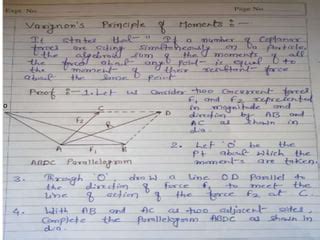 Expt. No.
Page No.
Varignon's Principle of Moments :-
It states that - " If a number of Coplanar
forces are acting simultaneously on a particle,
the algebraic sum of the moments of all
the forces about any point is equal to
the moment of their resultant force
about the same point.
Proof :- 1. Let us consider two concurrent forces
F1 and F2 represented
in magnitude and
direction by AB and
AC as shown in
dia.
O
C
D
F2
R
A
F1
B
ABDC Parallelogram
2. Let 'O' be the
Pt about which the
moments are taken.
3. Through 'O' draw a line OD Parallel to
the direction of force F1 to meet the
line of action of the force F2 at C.
4. With AB and AC as two adjacent sides,
Complete the Parallelogram ABDC as shown in
dia.